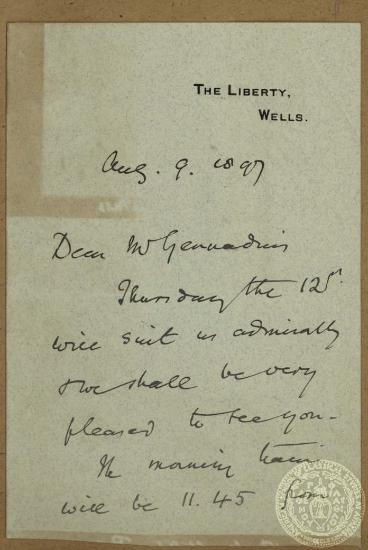 THE LIBERTY,
WELLS.
Aug. 9. 1897
Dear Mr Gennadius
Thursday the 12th.
will suit us admirably
& we shall be very
pleased to see you -
The morning train
will be 11.45 from